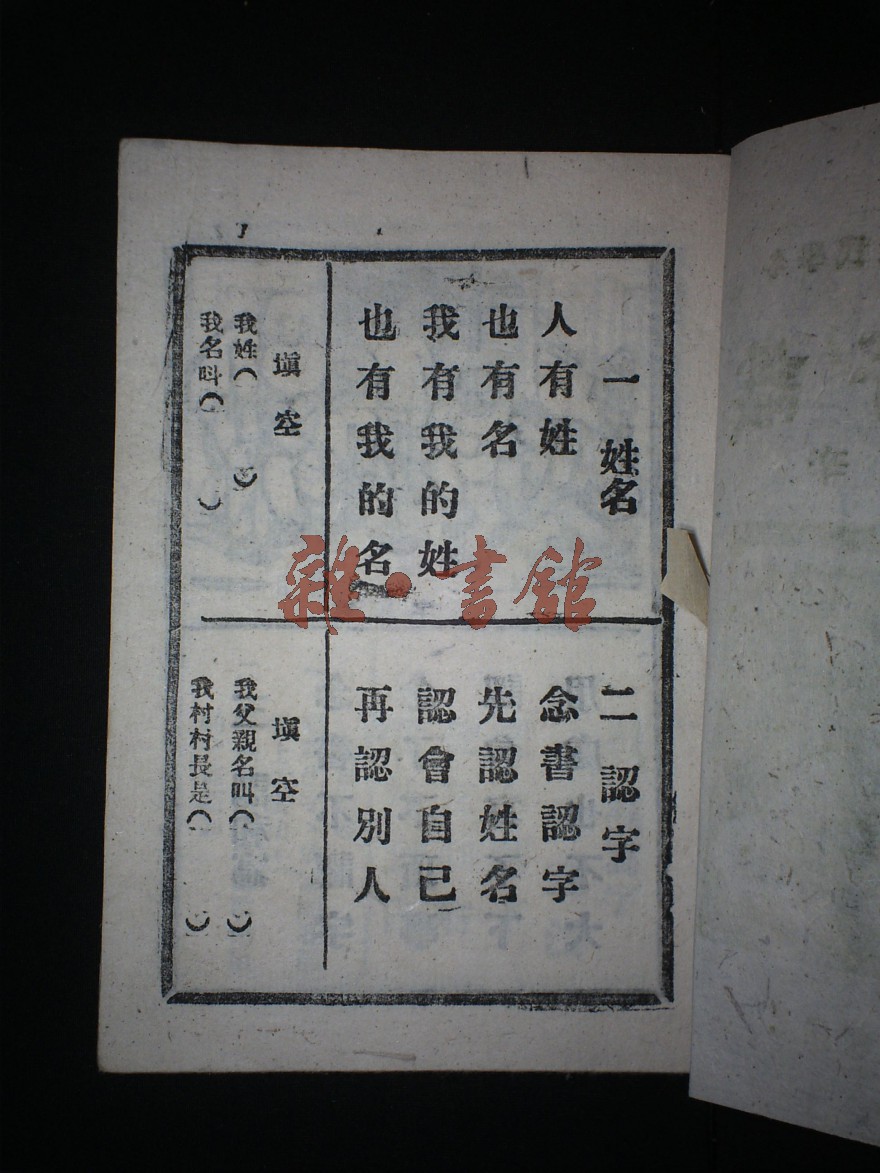 一 姓名
人有姓
也有名
我有我的姓
也有我的名
填空
我姓（ ）
我名叫（ ）
二 認字
念書認字
先認姓名
認會自己
再認別人
填空
我父親名叫（ ）
我村村長是（ ）
雜·書館